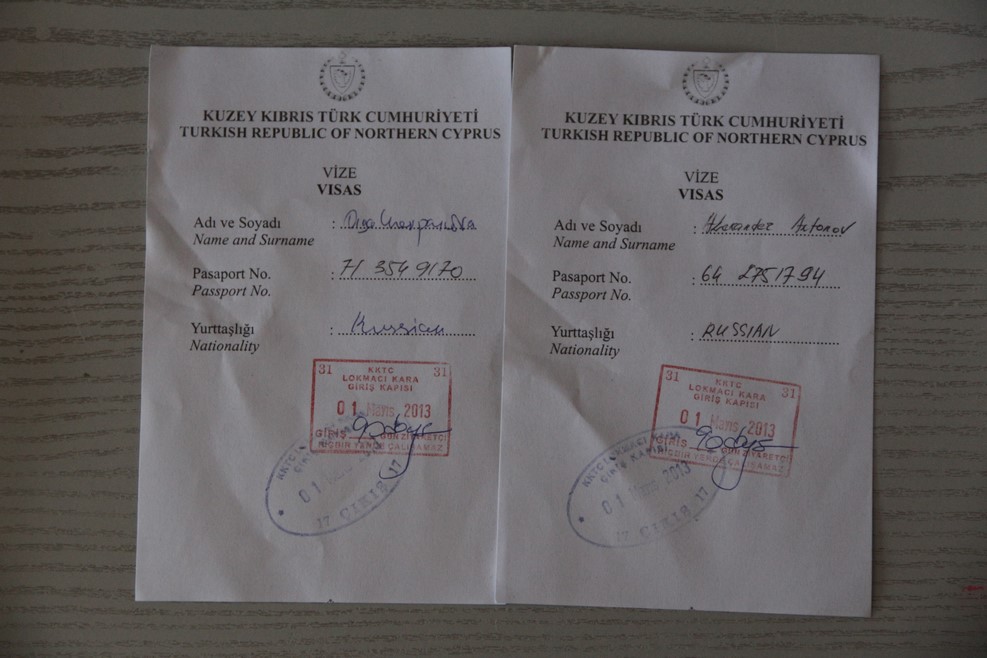 KUZEY KIBRIS TÜRK CUMHURİYETİ
TURKISH REPUBLIC OF NORTHERN CYPRUS
VİZE
VISAS
Adı ve Soyadı :
Name and Surname
Pasaport No. : 71 3549170
Passport No.
Yurttaşlığı : Russian
Nationality
31 31
KKTC
LOKMACI KARA
GİRİŞ KAPISI
01 Mayıs 2013
GİRİŞ GÜN ZİYARETÇİ
HİÇBİR YERDE ÇALIŞAMAZ
KKTC LOKMACI
01
17 ÇIKIŞ 17
KUZEY KIBRIS TÜRK CUMHURİYETİ
TURKISH REPUBLIC OF NORTHERN CYPRUS
VİZE
VISAS
Adı ve Soyadı : Alexander Antonov
Name and Surname
Pasaport No. : 64 2751794
Passport No.
Yurttaşlığı : RUSSIAN
Nationality
31 31
KKTC
LOKMACI KARA
GİRİŞ KAPISI
01 Mayıs 2013
GİRİŞ GÜN ZİYARETÇİ
HİÇBİR YERDE ÇALIŞAMAZ
KKTC LOKMACI
01 Mayıs 2013
17 ÇIKIŞ 17